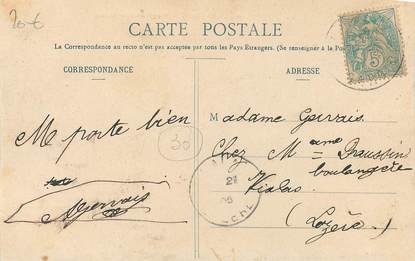 20€
CARTE POSTALE
La Correspondance au recto n'est pas acceptée par tous les Pays Etrangers. (Se renseigner à la Poste
CORRESPONDANCE
ADRESSE
5
Me porte bien
30
Gervais
Madame Gervais
Chez Mame
boulangère
Vialas
(Lozère)
21